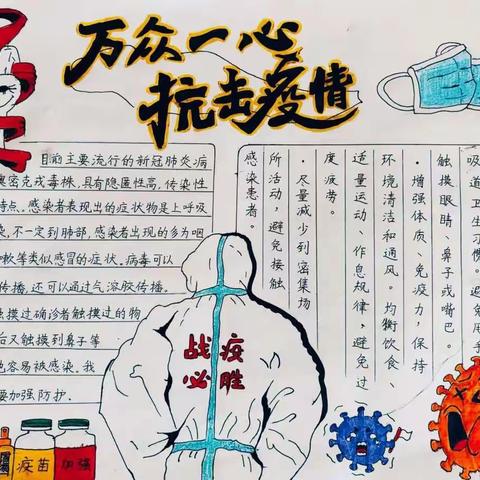 万众一心
抗击疫情
目前主要流行的新冠肺炎病
奥密克戎毒株,具有隐匿性高,传染性
特点。感染者表现出的症状物是上呼吸
染,不一定到肺部,感染者出现的多为咽
嗽等类似感冒的症状。病毒可以
传播,还可以通过气溶胶传播。
触摸过确诊者触摸过的物
后又触摸到鼻子等
也容易被感染。我
要加强防护。
吸道卫生习惯。避免用手
触摸眼睛、鼻子或嘴巴。
·增强体质、免疫力,保持
环境清洁和通风。均衡饮食、
适量运动、作息规律,避免过
度疲劳。
·尽量减少到密集场
所活动,避免接触
感染患者。
战疫
必胜
疫苗
加强